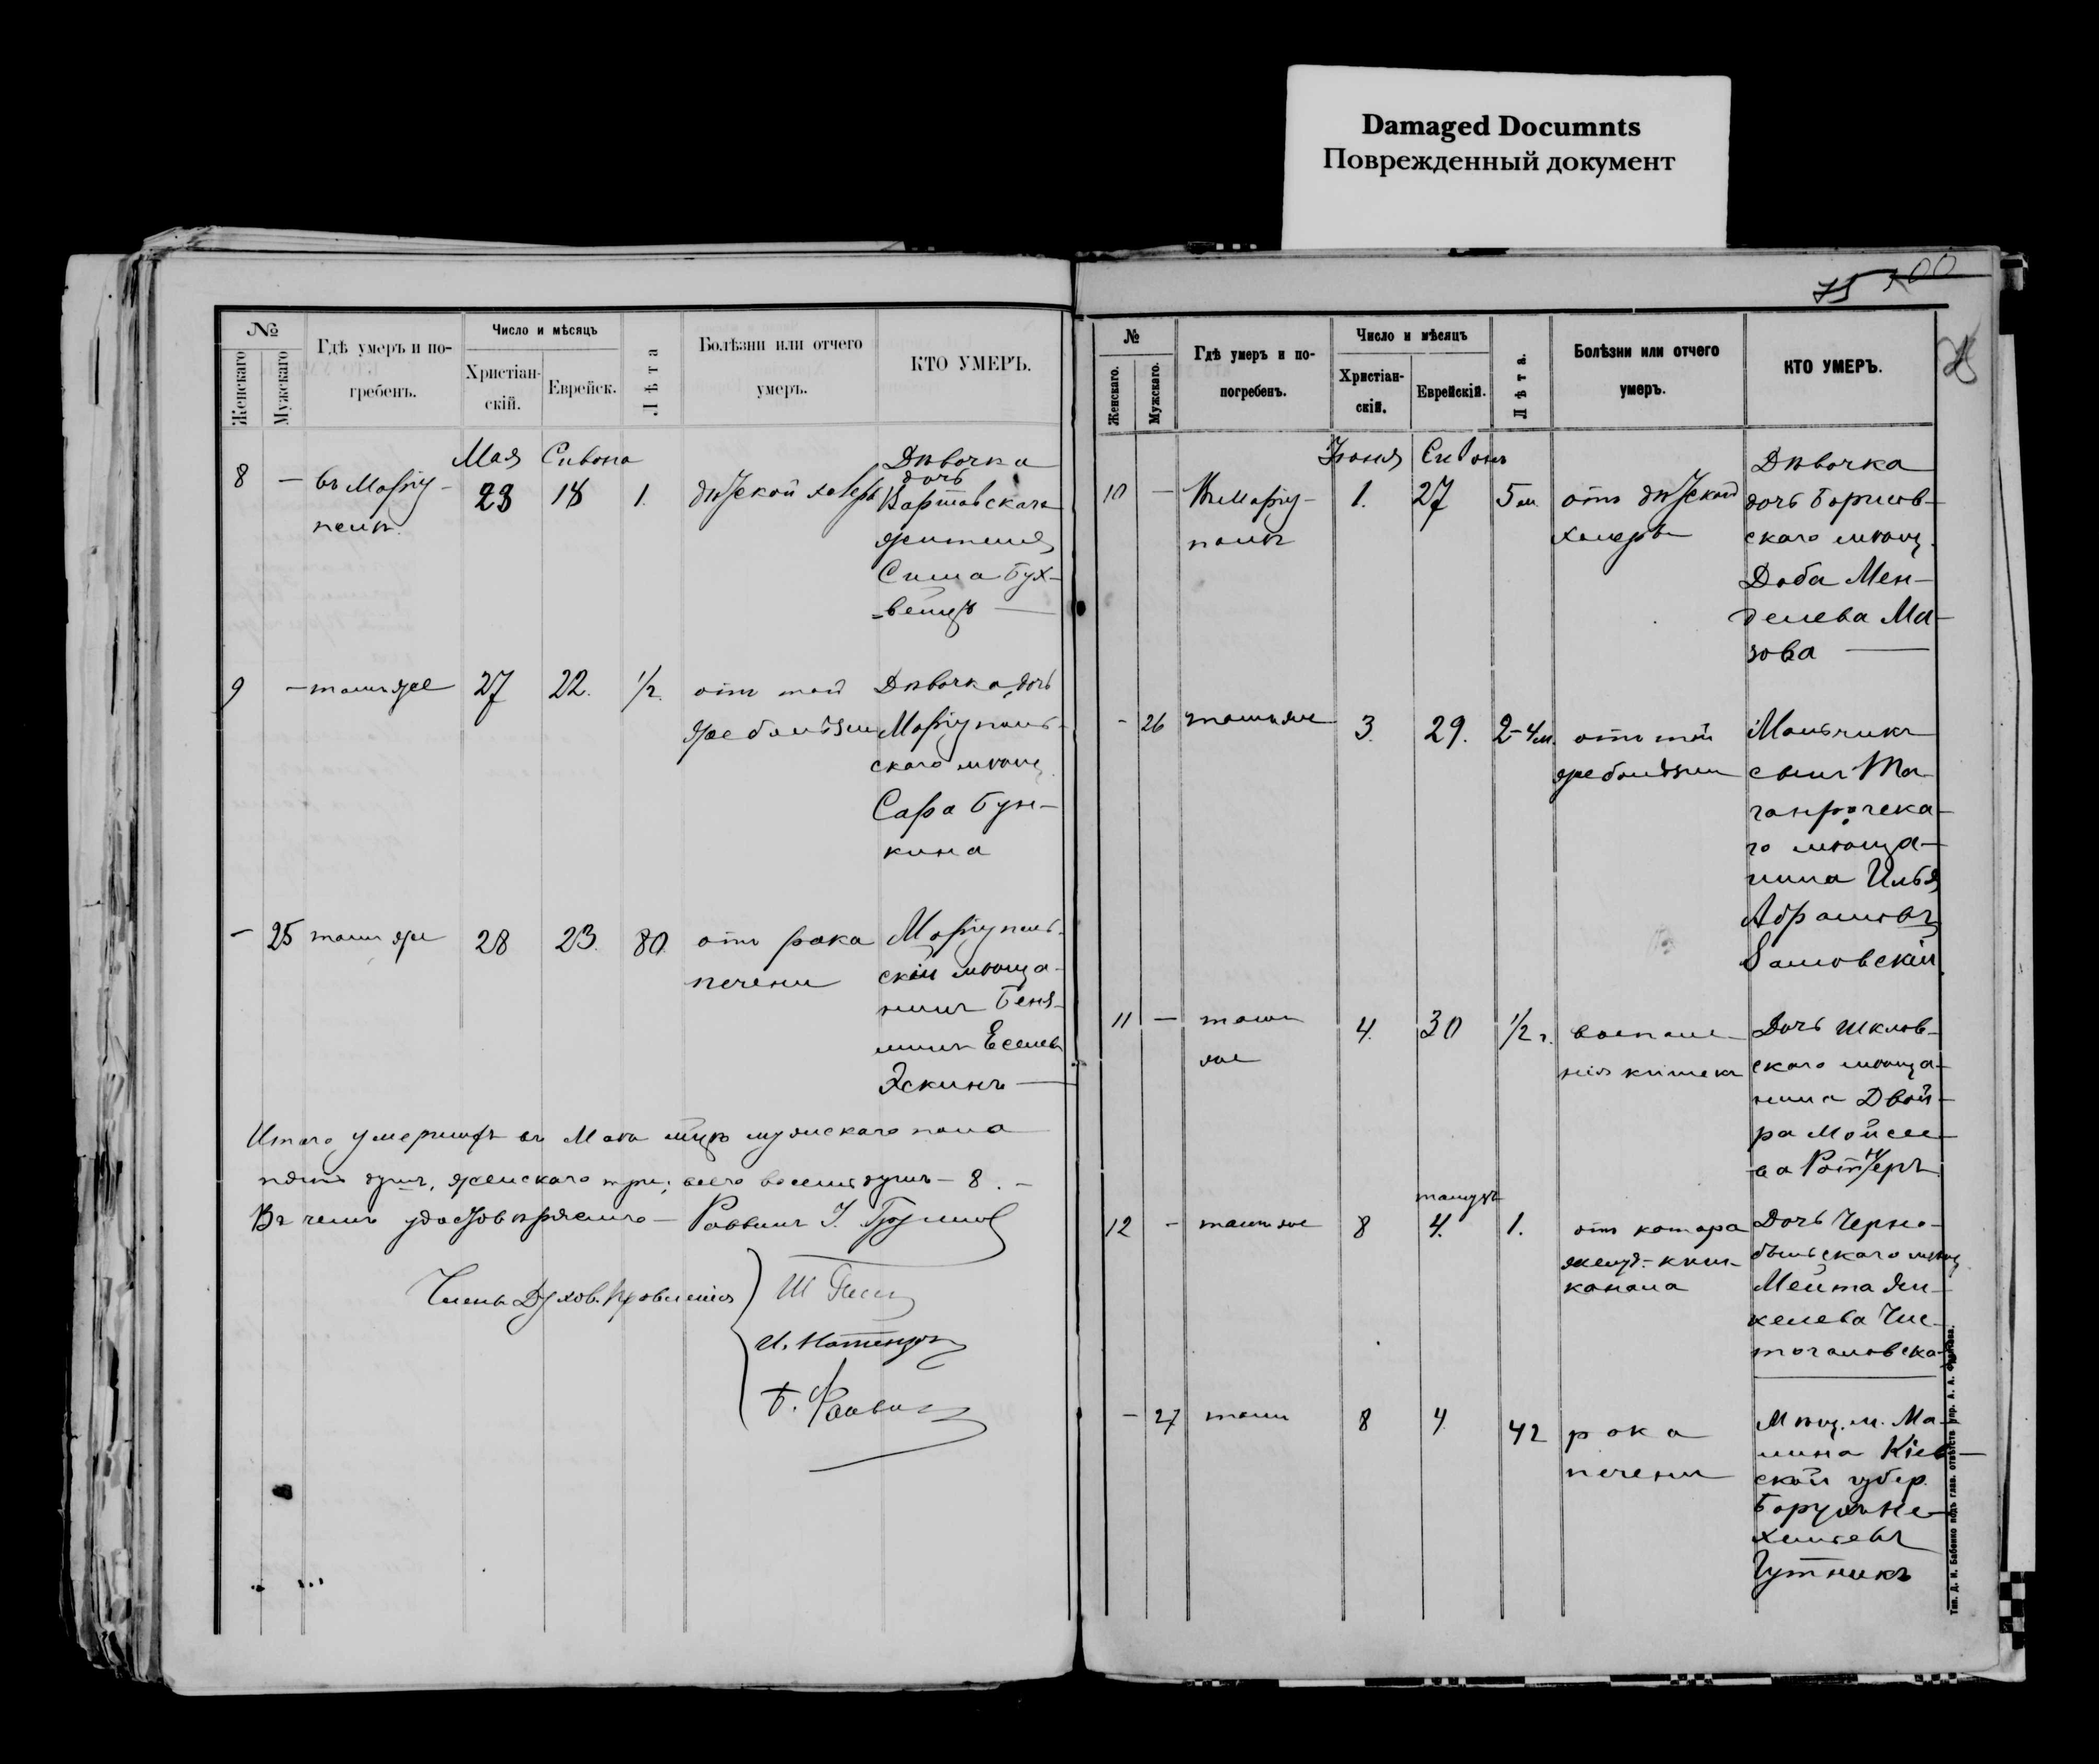 Damaged Documnts
Поврежденный документ
№
Женскаго
Мужскаго
Гдѣ умеръ и по-
гребенъ.
Число и мѣсяцъ
Христіан-
скій.
Еврейск.
Лѣта
Болѣзни или отчего
умеръ.
КТО УМЕРЪ.
Мая Сивона
8 — въ Маріу-
полѣ
23 18 1.
дѣтской холеры
Дѣвочка
дочь
Варшавскаго
жителя
Сима Бух-
9 — тамъ же 27 22. 1/2.
отъ той
же болѣзни
Дѣвочка, дочь
Маріуполь-
скаго мѣщ.
Сара Бун-
кина
— 25 тамъ же 28 23. 80.
отъ рака
печени
Маріуполь-
скій мѣща-
нинъ Беня-
минъ Еселевъ
Эскинъ —
Итого умершихъ въ Маѣ мѣсяцѣ мужскаго пола
пять душъ, женскаго три, всего восемь душъ — 8. —
Въ чемъ удостовѣряемъ — Раввинъ
Члены Духов. Правленія
75 100
№
Женскаго.
Мужскаго.
Гдѣ умеръ и по-
погребенъ.
Число и мѣсяцъ
Христіан-
скій.
Еврейскій.
Лѣта.
Болѣзни или отчего
умеръ.
КТО УМЕРЪ.
Іюня Сивонъ
10 — Въ Маріу-
полѣ
1. 27 5 м.
отъ дѣтской
холеры
Дѣвочка
дочь Борисов-
скаго мѣщ.
Доба Мен-
делева Ма-
зова —
— 26 тамъ же 3. 29. 2-4м.
отъ той
же болѣзни
Мальчикъ
сынъ Та-
ганрогска-
го мѣща-
нина Илья
Абрамовъ
11 — тамъ
же
4. 30 1/2 г.
воспале-
нія кишекъ
Дочь Шклов-
скаго мѣща-
нина Двой-
ра Мойсее-
ва
тамузъ
12 — тамъ же 8 4. 1.
отъ катара
желуд.-киш.
канала
Дочь Черно-
быльскаго мѣщ.
Мейта Ян-
келева Чис-
тогаловска-
— 27 тамъ 8 4 42
рака
печени
Мѣщ. м. Ма-
лина Кіев-
ской губер.
Борухъ Не-
хемьевъ
Гутникъ
Тип. Д. И. Бабенко подъ глав. отвѣтств. упр. А. А.